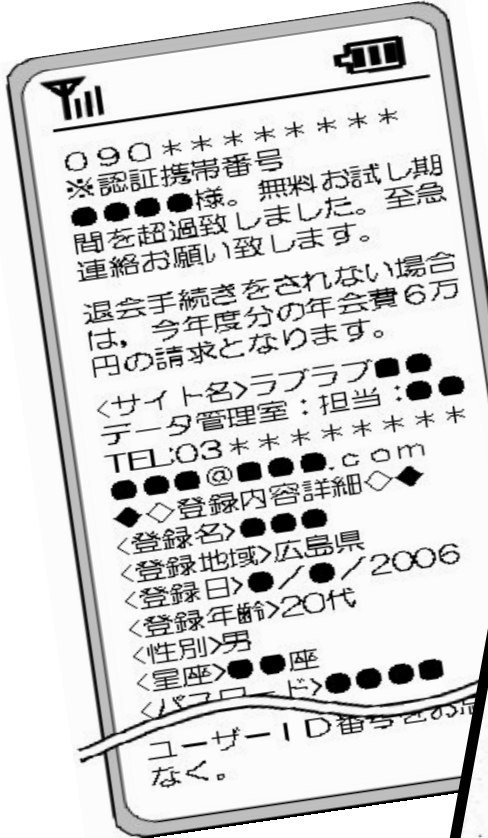 090********
※認証携帯番号
●●●●様。無料お試し期
間を超過致しました。至急
連絡お願い致します。
退会手続きをされない場合
は、今年度分の年会費6万
円の請求となります。
<サイト名>ラブラブ●●
データ管理室:担当:●●
TEL:03********
●●●@●●●.com
◆◇登録内容詳細◇◆
<登録名>●●●
<登録地域>広島県
<登録日>●/●/2006
<登録年齢>20代
<性別>男
<星座>●●座
<パスワード>●●●●
ユーザーID番号をお忘
なく。